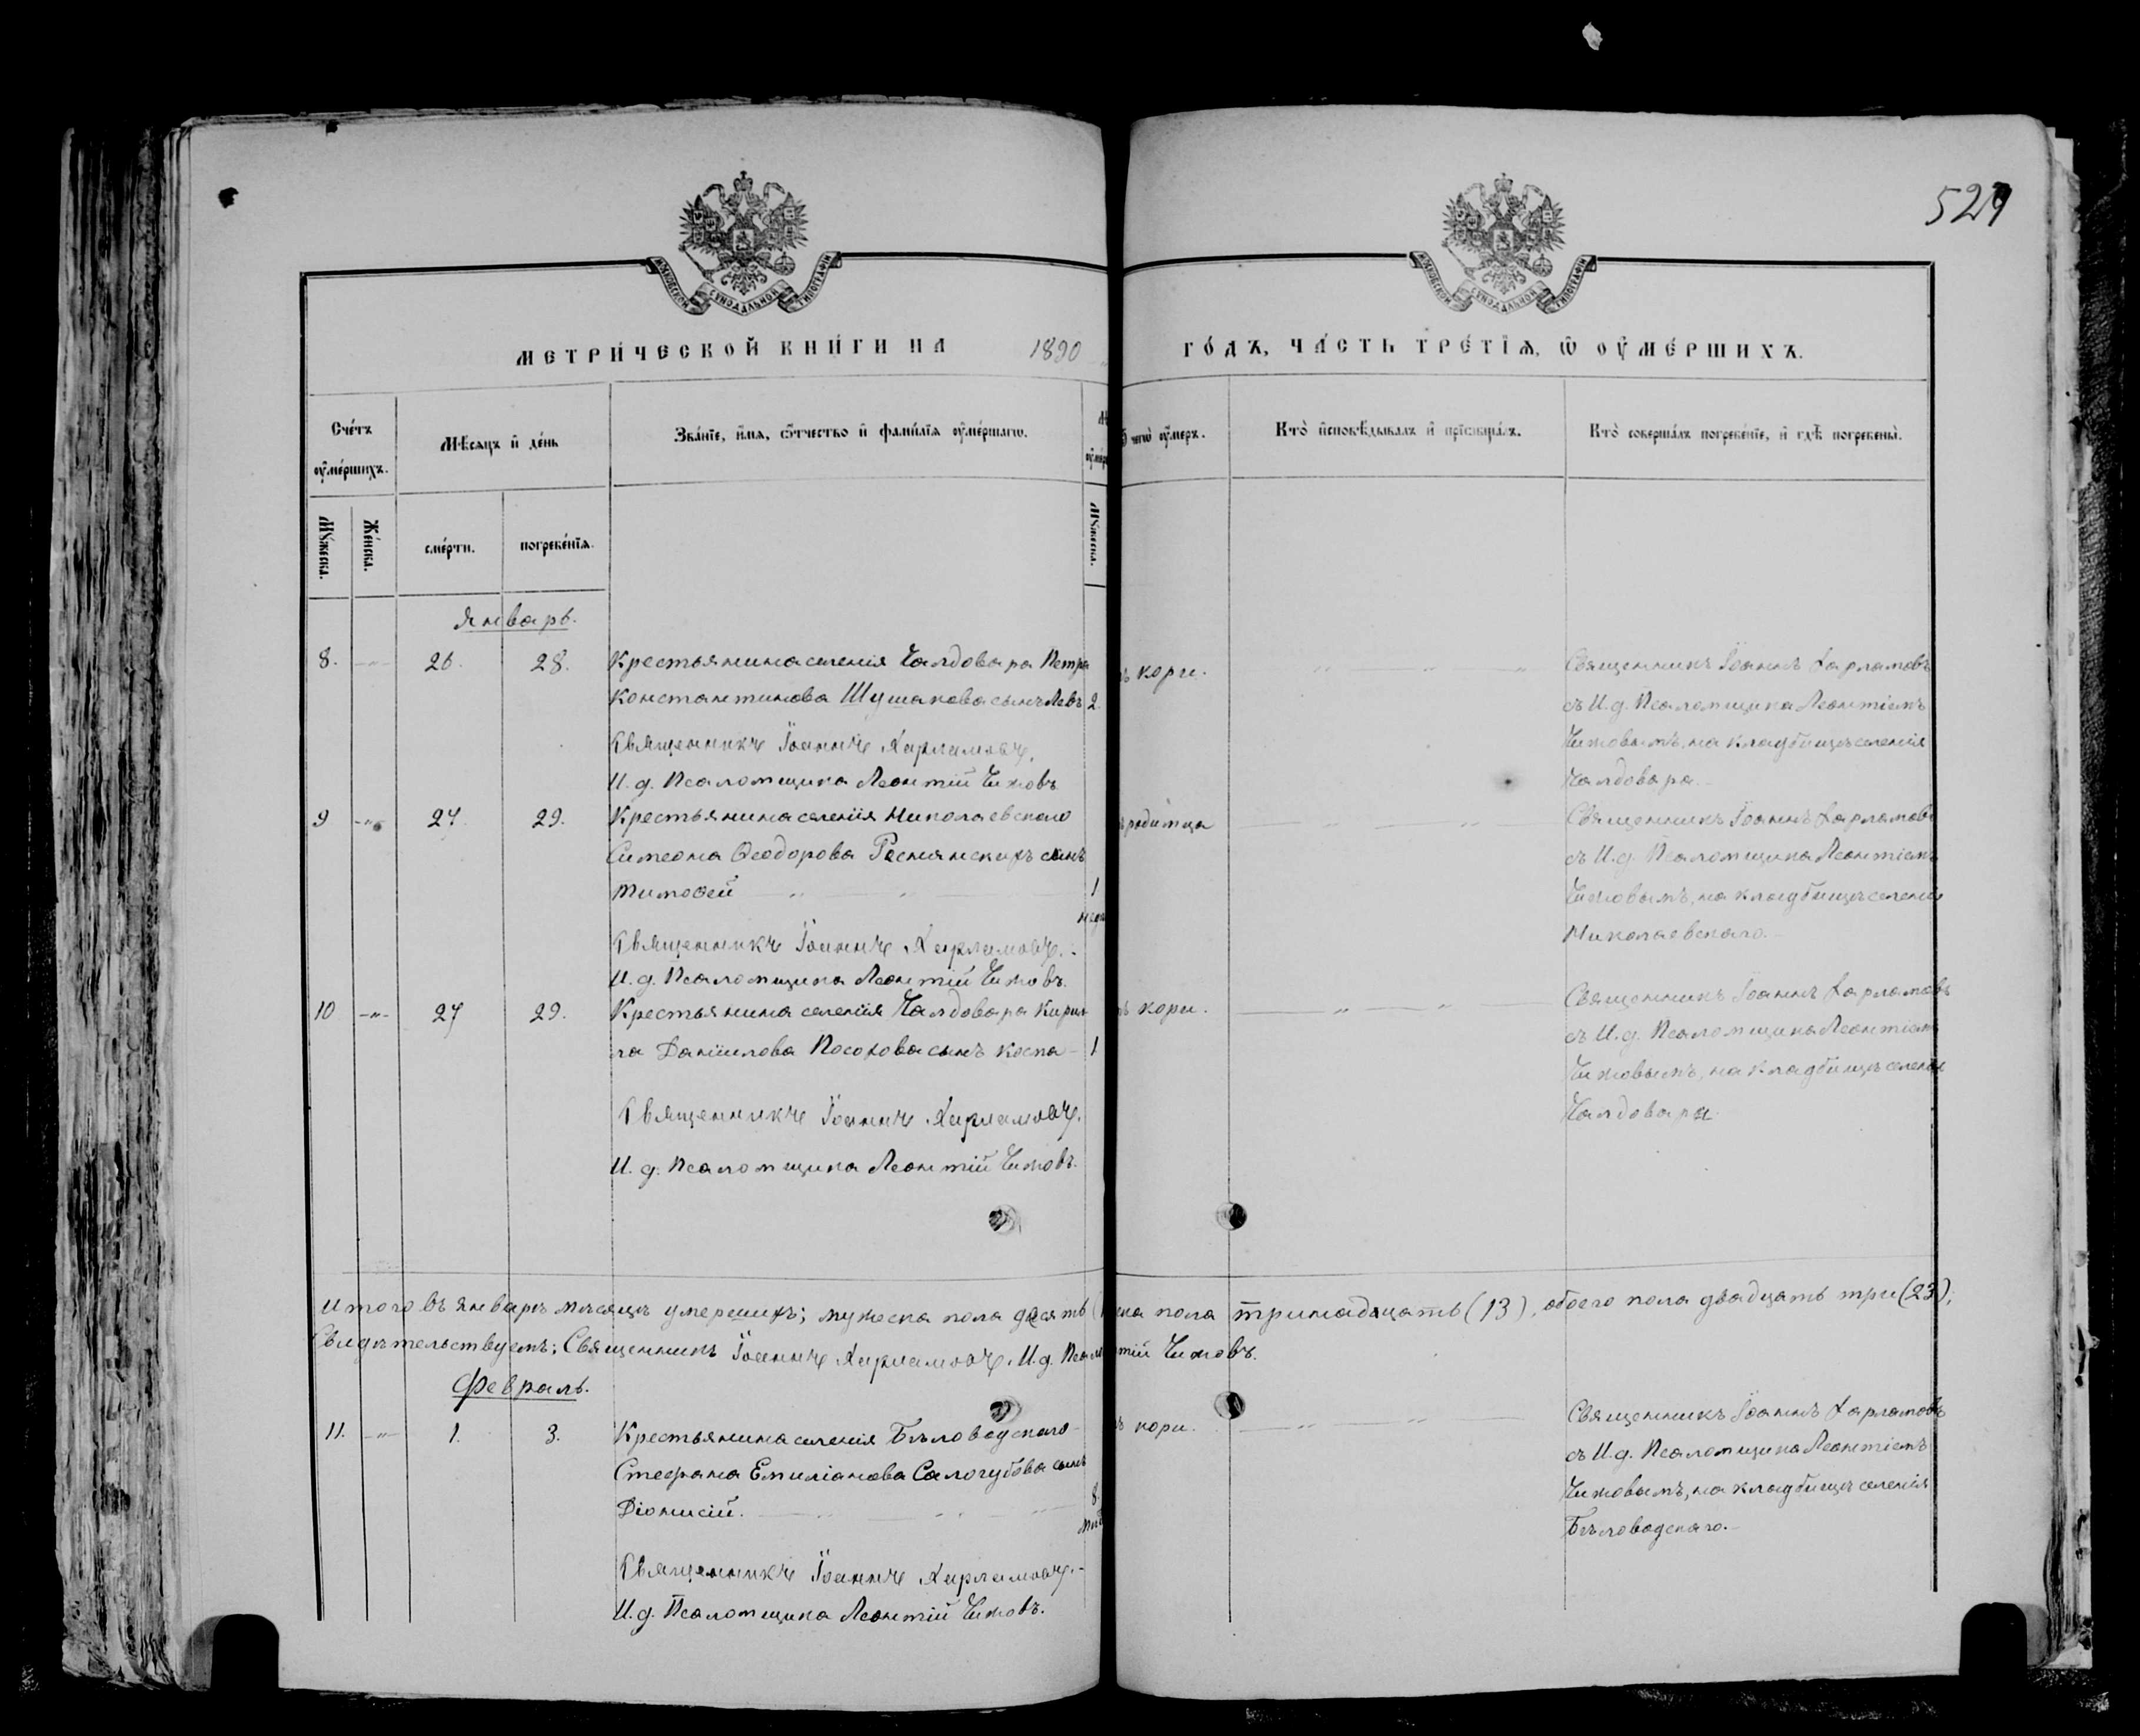 527
МОСКОВСКОЙ СѴНОДАЛЬНОЙ ТИПОГРАФІИ
МОСКОВСКОЙ СѴНОДАЛЬНОЙ ТИПОГРАФІИ
МЕТРИ́ЧЕСКОЙ КНИ́ГИ НА 1890 ГО́ДЪ, ЧА́СТЬ ТРЕ́ТІѦ, Ѡ ОУ҆МЕ́РШИХЪ.
Сче́тъ оу҆ме́ршихъ.
Мꙋжеска.
Же́нска.
Мѣ́сяцъ и҆ де́нь
сме́рти.
погребе́нїѧ.
Зва́нїе, и҆́мѧ, ѻ҆́тчество и҆ фами́лїѧ оу҆ме́ршагѡ.
Мꙋжеска.
чегѡ̀ оу҆́меръ.
Кто̀ и҆сповѣ́дывалъ и҆ прїѡбща́лъ.
Кто̀ соверша́лъ погребе́нїе, и҆ гдѣ̀ погребены̀.
Январь.
8. -"- 26. 28. Крестьянина селенія Чалдовара Петра
Константинова Шушакова сынъ Левъ 2.
Священникъ Іоаннъ Харламовъ.
И. д. Псаломщика Леонтій Чижовъ
ъ кори. " " "
Священникъ Іоаннъ Харламовъ
съ И. д. Псаломщика Леонтіемъ
Чижовымъ, на кладбищѣ селенія
Чалдовара.
9 -"- 27. 29. Крестьянина селенія Николаевскаго
Симеона Ѳеодорова Роснянскихъ сынъ
Тимоѳей " " 1
Священникъ Іоаннъ Харламовъ.
И. д. Псаломщика Леонтій Чижовъ.
родимца " "
Священникъ Іоаннъ Харламовъ
съ И. д. Псаломщика Леонтіемъ
Чижовымъ, на кладбищѣ селенія
Николаевскаго.
10 -"- 27 29. Крестьянина селенія Чалдовара Кирил-
ла Даніилова Посохова сынъ Косма - 1
Священникъ Іоаннъ Харламовъ.
И. д. Псаломщика Леонтій Чижовъ.
ъ кори. " "
Священникъ Іоаннъ Харламовъ
съ И. д. Псаломщика Леонтіемъ
Чижовымъ, на кладбищѣ селенія
Чалдовара
Итого въ январѣ мѣсяцѣ умершихъ; мужеска пола десять ска пола тринадцать (13), обоего пола двадцать три (23);
Свидѣтельствуемъ; Священникъ Іоаннъ Харламовъ. И. д. Псал тій Чижовъ.
Февраль.
11. -"- 1. 3. Крестьянина селенія Бѣловодскаго
Стефана Емиліанова Салогубова сынъ
Діонисій. 8.
Священникъ Іоаннъ Харламовъ.-
И. д. Псаломщика Леонтій Чижовъ.
ъ кори. " "
Священникъ Іоаннъ Харламовъ
съ И. д. Псаломщика Леонтіемъ
Чижовымъ, на кладбищѣ селенія
Бѣловодскаго.-